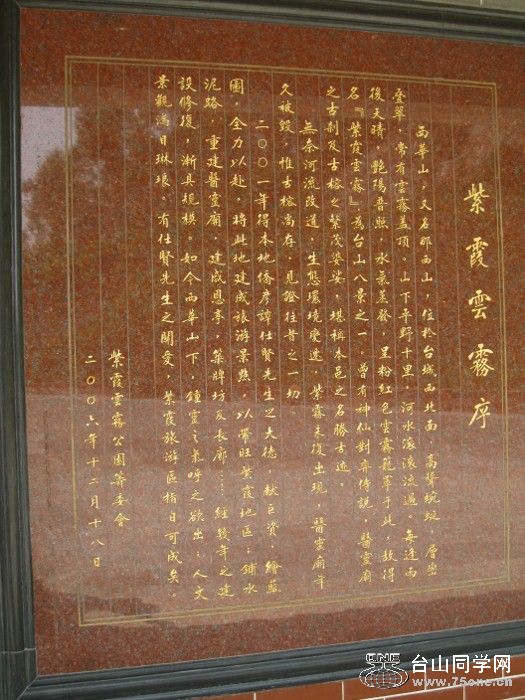 紫霞雲霧序
西華山，又名那西山，位於台城西北面，高聳蜿蜒，層巒
疊翠，常有雲霧蓋頂。山下平野十里，河水滾滾流過，每逢雨
後天晴，艷陽普照，水氣蒸發，呈粉紅色雲霧籠罩于此，故得
名『紫霞雲霧』，為台山八景之一，曾有神仙對弈傳說，醫靈廟
之古刹及古榕之繁茂婆娑，堪稱本邑之名勝古迹。
無奈河流改道，生態環境變遷，紫霧未復出現，醫靈廟年
久被毀，惟古榕尚存，見證往昔之一切。
二〇〇一年得本地僑彥譚仕賢先生之大德，献巨資，繪藍
圖，全力以赴，將此地建成旅游景點，以帶旺紫霞地區；鋪水
泥路，重建醫靈廟，建成恩亭，築牌坊及長廊……經幾年之建
設修復，漸具規模。如今西華山下，鍾靈之氣呼之欲出；人文
景觀滿目琳琅。有仕賢先生之關愛，紫霞旅游區指日可成矣。
紫霞雲霧公園籌委會
二〇〇六年十二月十八日
ONE
台山同学网
www.75one.cn